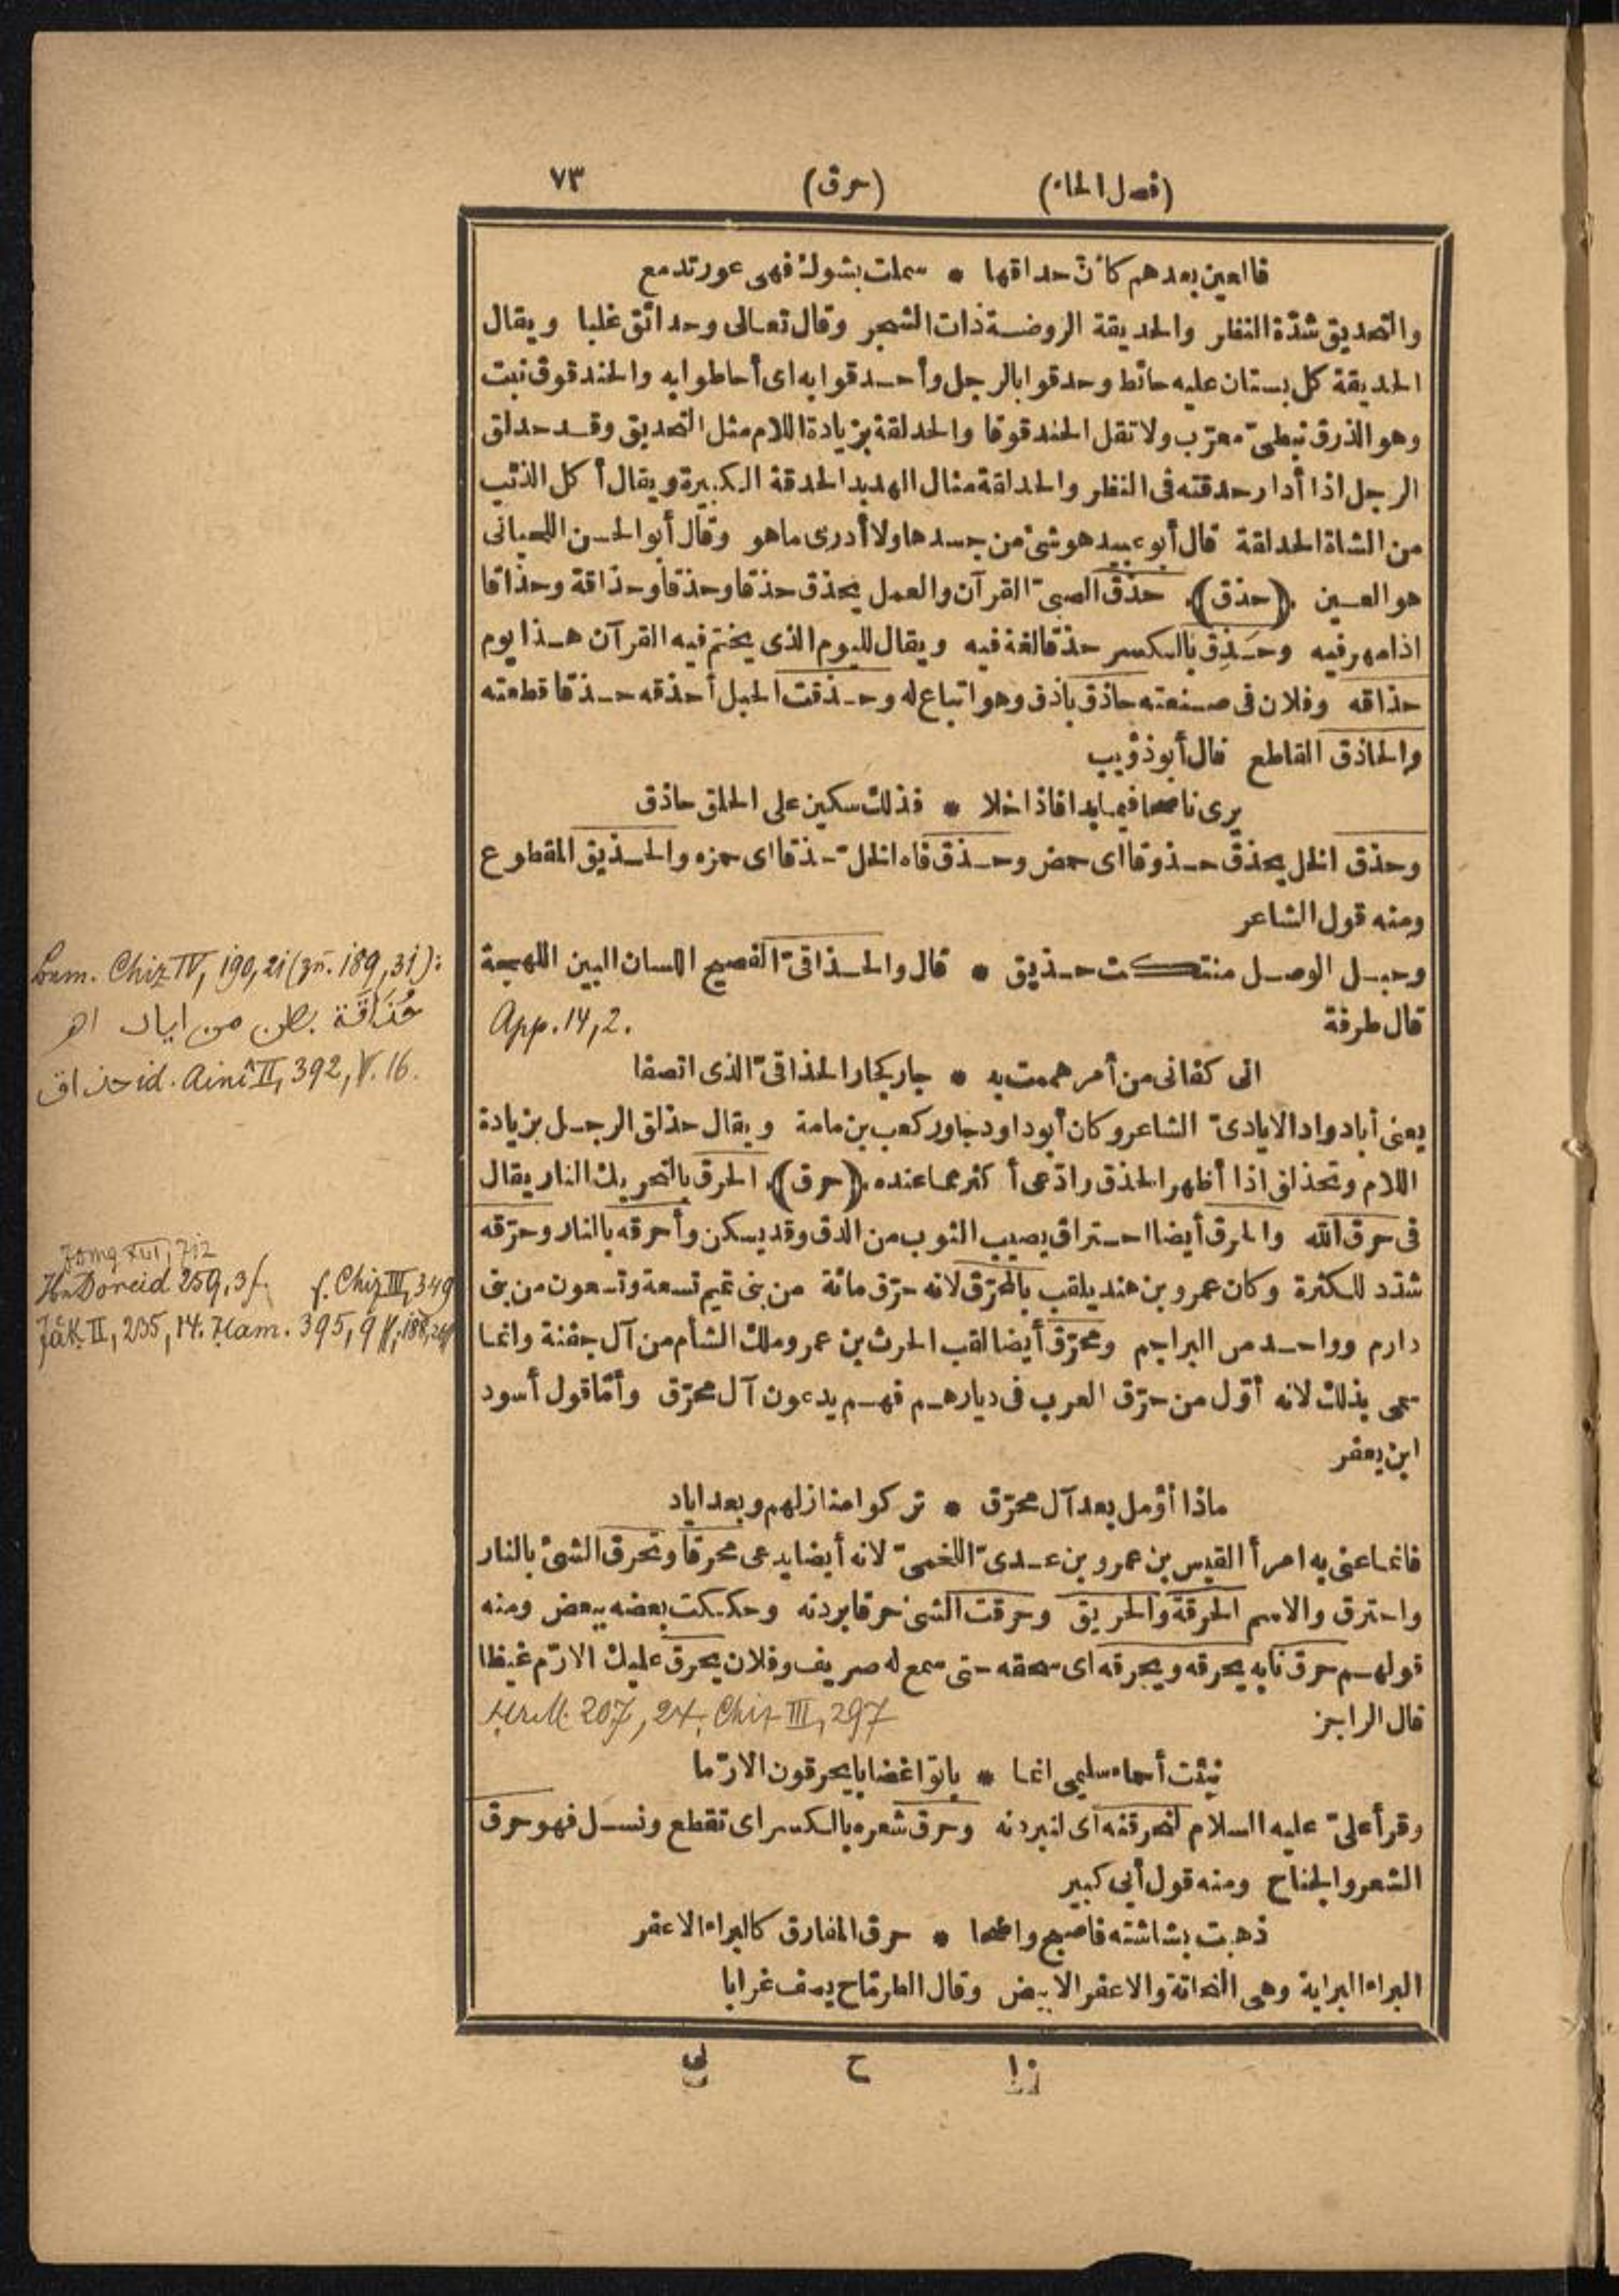 (فصل الحاء) (حرق) ٧٣
فالعين بعدهم كأنّ حداقها * سملت بشوك فهى عور تدمع
والتحديق شدّة النظر والحديقة الروضة ذات الشجر وقال تعالى وحدائق غلبا ويقال
الحديقة كل بستان عليه حائط وحدقوا بالرجل وأحدقوا به اى أحاطوا به والحندقوق نبت
وهو الذرق نبطىّ معرّب ولا تقل الحندقوقا والحدلقة بزيادة اللام مثل التحديق وقد حدلق
الرجل اذا أدار حدقته فى النظر والحدلقة مثال الهدبد الحدقة الكبيرة ويقال أكل الذئب
من الشاة الحدلقة قال أبو عبيد هو شئ من جسدها ولا أدرى ما هو وقال أبو الحسن اللحيانى
هو العين (حذق) حذق الصبىّ القرآن والعمل يحذق حذقا وحذقا وحذاقة وحذاقا
اذا مهر فيه وحَذِق بالكسر حذقا لغة فيه ويقال لليوم الذى يختم فيه القرآن هذا يوم
حذاقه وفلان فى صنعته حاذق باذق وهو اتباع له وحذقت الحبل أحذقه حذقا قطعته
والحاذق القاطع قال أبو ذؤيب
يرى ناصحا فيما بدا فاذا خلا * فذلك سكين على الحلق حاذق
وحذق الخل يحذق حذوقا اى حمض وحذق فاه الخلّ حذقا اى حمزه والحذيق المقطوع
ومنه قول الشاعر
وحبل الوصل منتكث حذيق * قال والحذاقىّ الفصيح اللسان البين اللهجة
قال طرفة App. 14, 2.
انى كفانى من أمر هممت به * جار كجار الحذاقىّ الذى اتصفا
يعنى أبا دواد الايادىّ الشاعر وكان أبو داود جاور كعب بن مامة ويقال حذلق الرجل بزيادة
اللام وتحذلق اذا أظهر الحذق وادّعى أكثر مما عنده (حرق) الحرق بالتحريك النار يقال
فى حرق الله والحرق أيضا احتراق يصيب الثوب من الدق وقد يسكن وأحرقه بالنار وحرّقه
شدّد للكثرة وكان عمرو بن هند يلقب بالمحرّق لانه حرّق مائة من بنى تميم تسعة وتسعون من بنى
دارم وواحد من البراجم ومحرّق أيضا لقب الحرث بن عمرو ملك الشأم من آل جفنة وانما
سمى بذلك لانه أوّل من حرّق العرب فى ديارهم فهم يدعون آل محرّق وأمّا قول أسود
ابن يعفر
ماذا أؤمل بعد آل محرّق * تركوا منازلهم وبعد اياد
فانما عنى به امرأ القيس بن عمرو بن عدىّ اللخمىّ لانه أيضا يدعى محرقا وتحرق الشئ بالنار
واحترق والاسم الحرقة والحريق وحرقت الشئ حرقا بردته وحككت بعضه ببعض ومنه
قولهم حرق نابه يحرقه ويحرقه اى سحقه حتى سمع له صريف وفلان يحرق عليك الارّم غيظا
قال الراجز 207, 24; Chiz III, 297
نبئت أحماء سليمى انما * باتوا غضابا يحرقون الارّما
وقرأ علىّ عليه السلام لنحرقنه اى لنبردنه وحرق شعره بالكسر اى تقطع ونسل فهو حرق
الشعر والجناح ومنه قول أبى كبير
ذهبت بشاشته فاصبح واضحا * حرق المفارق كالبراء الاعفر
البراء البراية وهى النحاتة والاعفر الابيض وقال الطرمّاح يصف غرابا
ح
Chiz IV, 190, 21 (zu. 189, 31):
حُذَاقَة بطن من اياد اهـ
حذاق id. Ainî II, 392, V. 16.
XVI, 712
Doreid 259, 3f. f. Chiz III, 349
Jâk. II, 235, 14. Ham. 395, 9